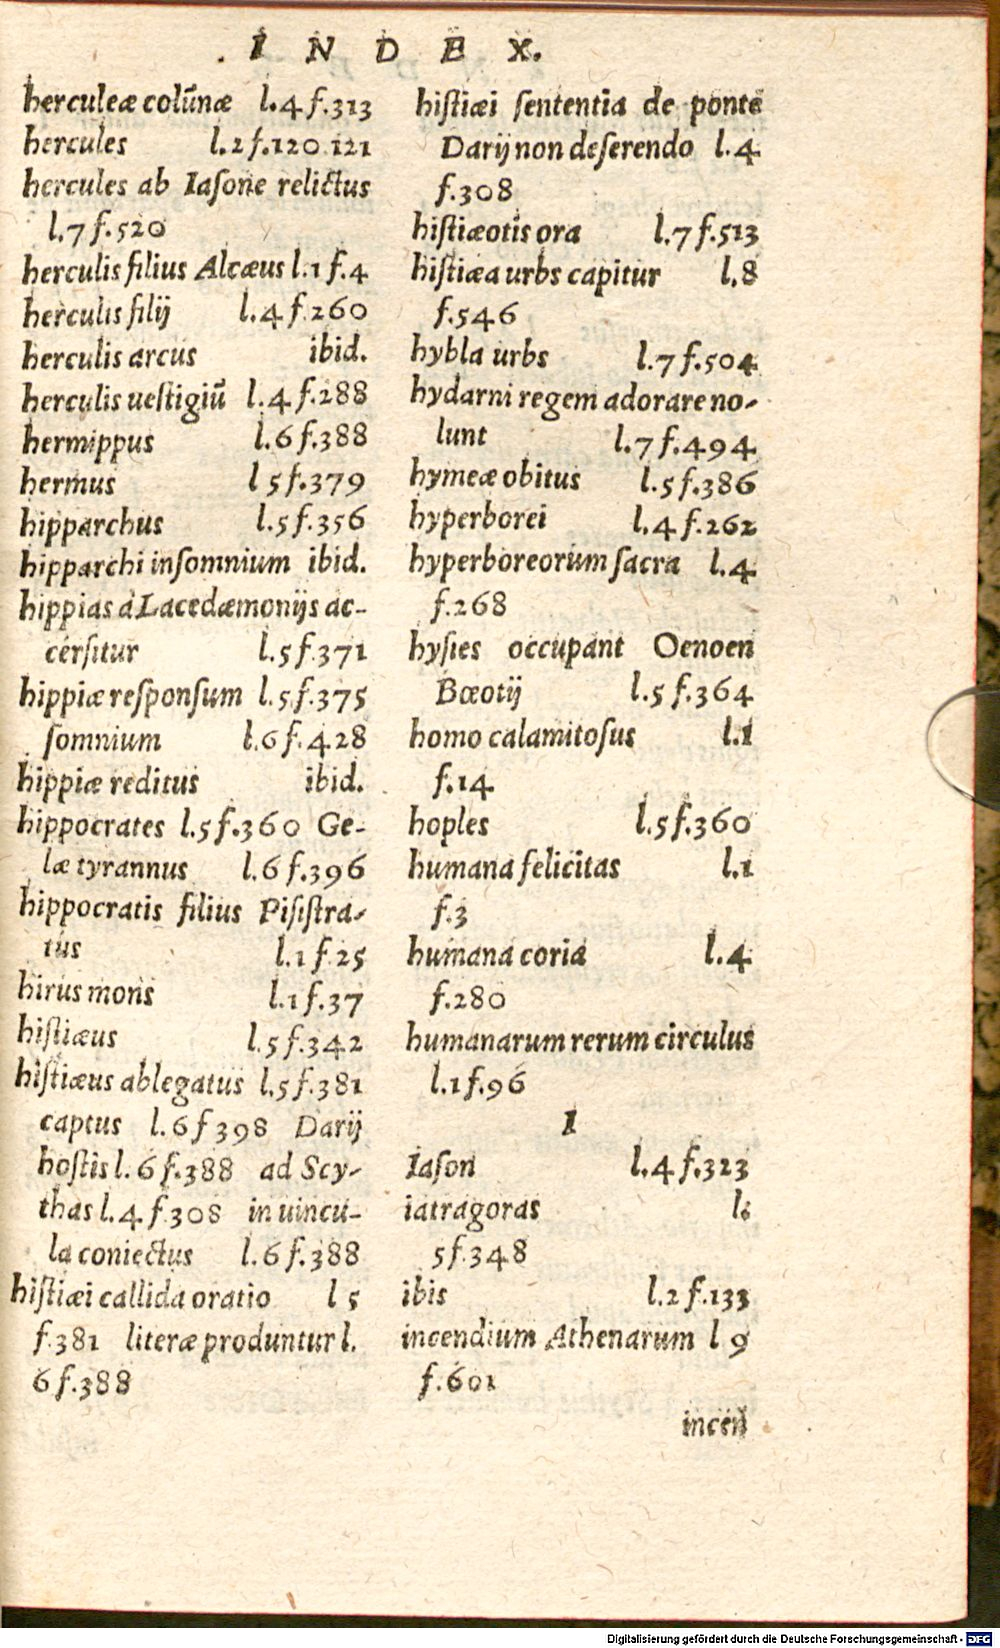 INDEX.
herculeæ colūnæ l.4 f.313
hercules l.2 f.120.121
hercules ab Iasone relictus
l.7 f.520
herculis filius Alcæus l.1 f.4
herculis filij l.4 f.260
herculis arcus ibid.
herculis uestigiū l.4 f.288
hermippus l.6 f.388
hermus l 5 f.379
hipparchus l.5 f.356
hipparchi insomnium ibid.
hippias à Lacedæmonijs ac-
cersitur l.5 f.371
hippiæ responsum l.5 f.375
somnium l.6 f.428
hippiæ reditus ibid.
hippocrates l.5 f.360 Ge-
læ tyrannus l.6 f.396
hippocratis filius Pisistra-
tus l.1 f 25
hirus mons l.1 f.37
histiæus l.5 f.342
histiæus ablegatus l.5 f.381
captus l.6 f 398 Darij
hostis l.6 f.388 ad Scy-
thas l.4 f 308 in uincu-
la coniectus l.6 f.388
histiæi callida oratio l 5
f.381 literæ produntur l.
6 f.388
histiæi sententia de ponte
Darij non deserendo l.4
f.308
histiæotis ora l.7 f.513
histiæa urbs capitur l.8
f.546
hybla urbs l.7 f.504
hydarni regem adorare no-
lunt l.7 f.494
hymeæ obitus l.5 f.386
hyperborei l.4 f.262
hyperboreorum sacra l.4
f.268
hysies occupant Oenoen
Bœotij l.5 f.364
homo calamitosus l.1
f.14
hoples l.5 f.360
humana felicitas l.1
f.3
humana coria l.4
f.280
humanarum rerum circulus
l.1 f.96
I
Iason l.4 f.323
iatragoras l.
5 f.348
ibis l.2 f.133
incendium Athenarum l 9
f.601
incen
Digitalisierung gefördert durch die Deutsche Forschungsgemeinschaft - DFG